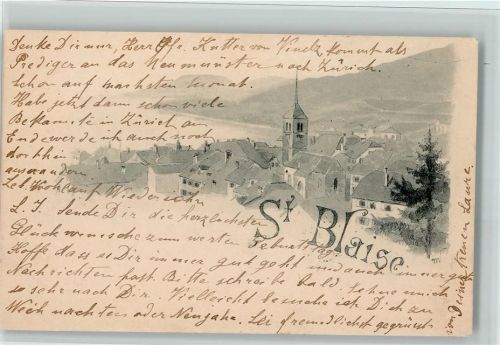 Denke Dir nur, Herr Pfr. Kutter von Vinelz kommt als
Prediger an das Neumünster nach Zürich.
Schon auf nächsten Monat.
Habe jetzt dann schon viele
Bekannte in Zürich am
Ende werde ich auch noch
dorthin
auswandern
Leb wohl auf Wiedersehn
L. I. Sende Dir die herzlichsten
Glückwünsche zum werten Geburtstag
Hoffe dass es Dir immer gut geht und auch immer gute
Nachrichten hast. Bitte schreibe bald. Sehne mich
so sehr nach Dir. Vielleicht besuche ich Dich zu
Weihnachten oder Neujahr. Sei freundlichst gegrüsst
von Deiner treuen Laura.
St Blaise